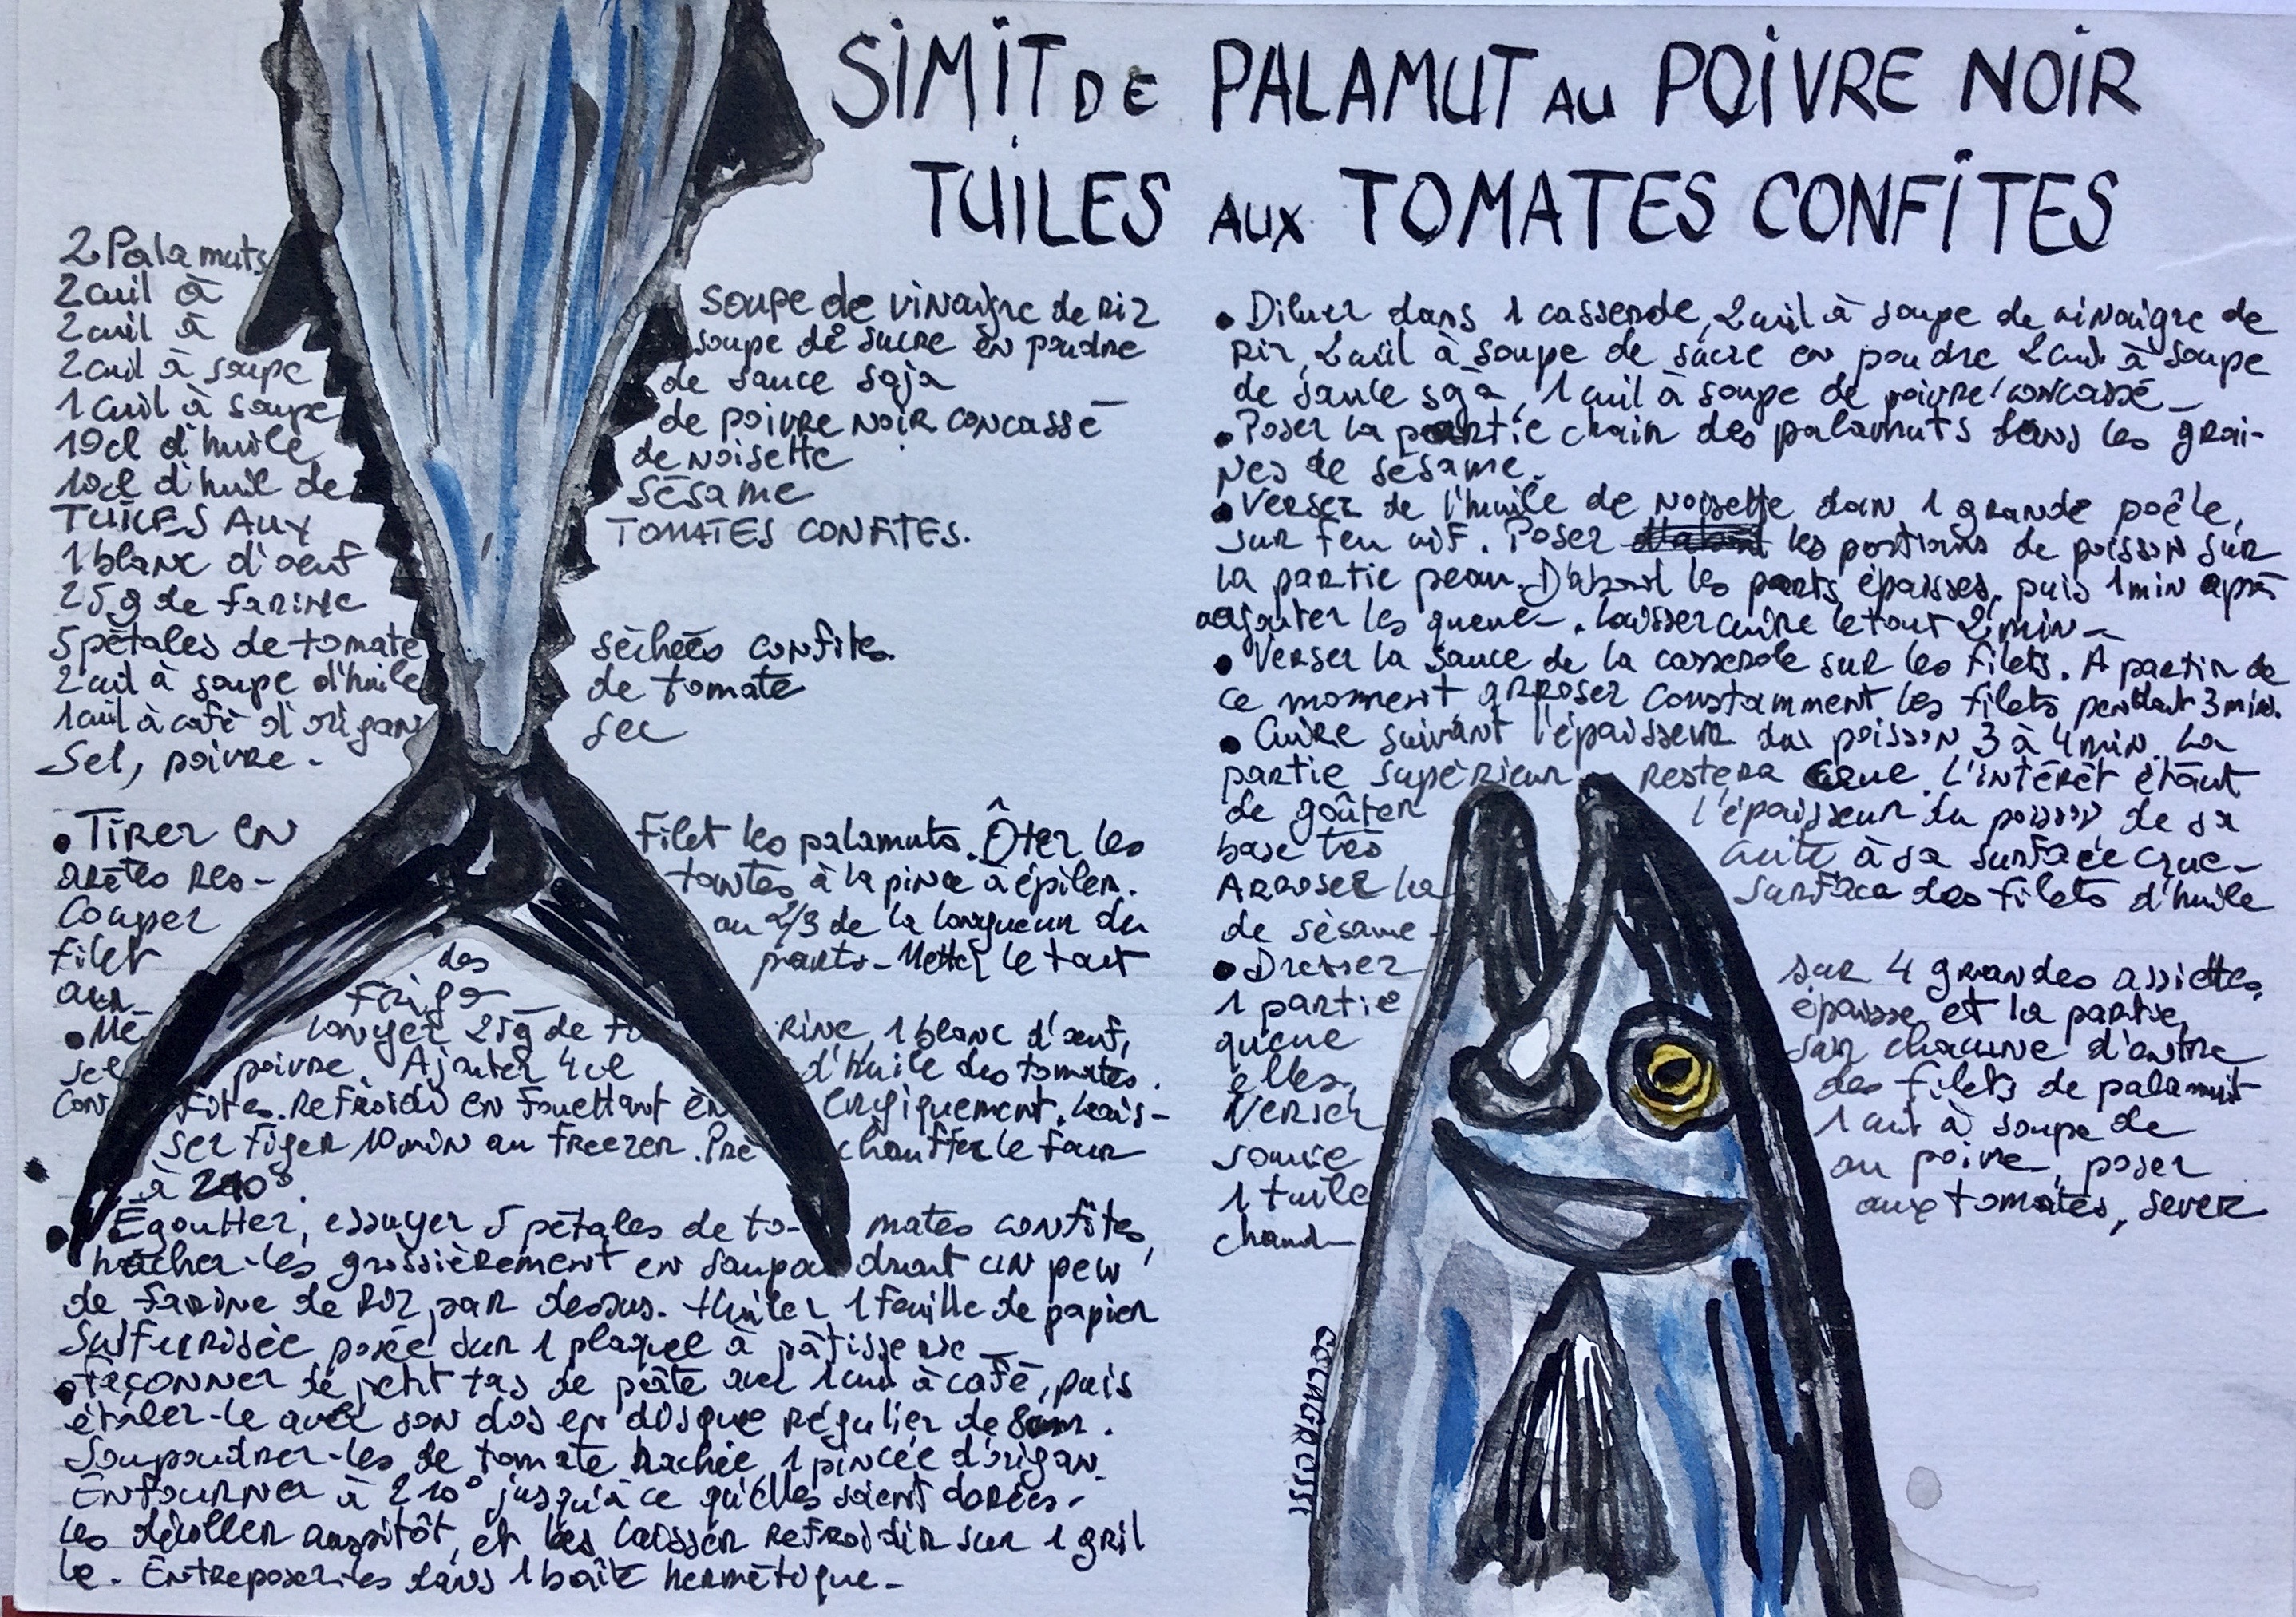 SIMIT DE PALAMUT AU POIVRE NOIR
TUILES AUX TOMATES CONFITES
2 Palamuts
2 cuil à soupe de vinaigre de Riz
2 cuil à soupe de sucre en poudre
2 cuil à soupe de sauce soja
1 cuil à soupe de poivre noir concassé
10cl d'huile de noisette
10cl d'huil de sésame
TUILES AUX TOMATES CONFITES.
1 blanc d'oeuf
25g de farine
5 pétales de tomate séchées confites.
2 cuil à soupe d'huile de tomate
1 cuil à café d'origan sec
Sel, poivre.
• Tirer en filet les palamuts. Ôter les
arêtes restantes à la pince à épiler.
Couper au 2/3 de la longueur du
filet parts. Mettez le tout
au frigo
• Mélanger 25g de farine, 1 blanc d'oeuf,
sel poivre. Ajouter 4cl d'huile des tomates
confites. Refroidir en fouettant énergiquement. Lais-
ser figer 10 min au freezer. Préchauffer le four
à 210°.
• Égoutter, essuyer 5 pétales de tomates confites,
hacher-les grossièrement en saupoudrant un peu
de farine de Riz par dessus. Huiler 1 feuille de papier
sulfurisée posée sur 1 plaque à pâtisserie
• Façonner de petit tas de pâte avec 1 cuil à café, puis
étaler-le avec son dos en disque régulier de 8cm.
Soupoudrer-les de tomate hachée 1 pincée d'origan.
Enfourner à 210° jusqu'à ce qu'elles soient dorées.
les décoller aussitôt, et les laisser refroidir sur 1 gril
le. Entreposer-les dans 1 boîte hermétique.
• Diluer dans 1 casserole, 2 cuil à soupe de vinaigre de
Riz, 2 cuil à soupe de sucre en poudre 2 cuil à soupe
de sauce soja, 1 cuil à soupe de poivre concassé.
• Poser la partie chair des palamuts dans les grai-
nes de sésame.
• Verser de l'huile de noisette dan 1 grande poêle,
sur feu vif. Poser les portions de poisson sur
la partie peau. D'abord les parts épaisses, puis 1 min après
ajouter les queue. Laisser cuire le tout 2 min
• Verser la sauce de la casserole sur les filets. A partir de
ce moment arroser constamment les filets pendant 3 min.
• Cuire suivant l'épaisseur du poisson 3 à 4 min. La
partie supérieur restera crue. L'intérêt étant
de goûter l'épaisseur du poisson, de sa
base très cuite à sa surface crue.
Arroser la surface des filets d'huile
de sésame.
• Dresser sur 4 grandes assiettes,
1 partie épaisse et la partie
queue sur chacune d'entre
elles. des filets de palamut
Verser 1 cuil à soupe de
au poivre, poser
1 tuile aux tomates, server
chaud